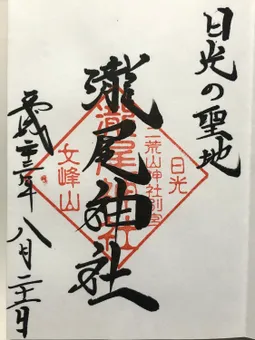 日光の聖地
瀧尾神社
日光
二荒山神社別宮
瀧尾神社
女峰山
平成 年八月 日